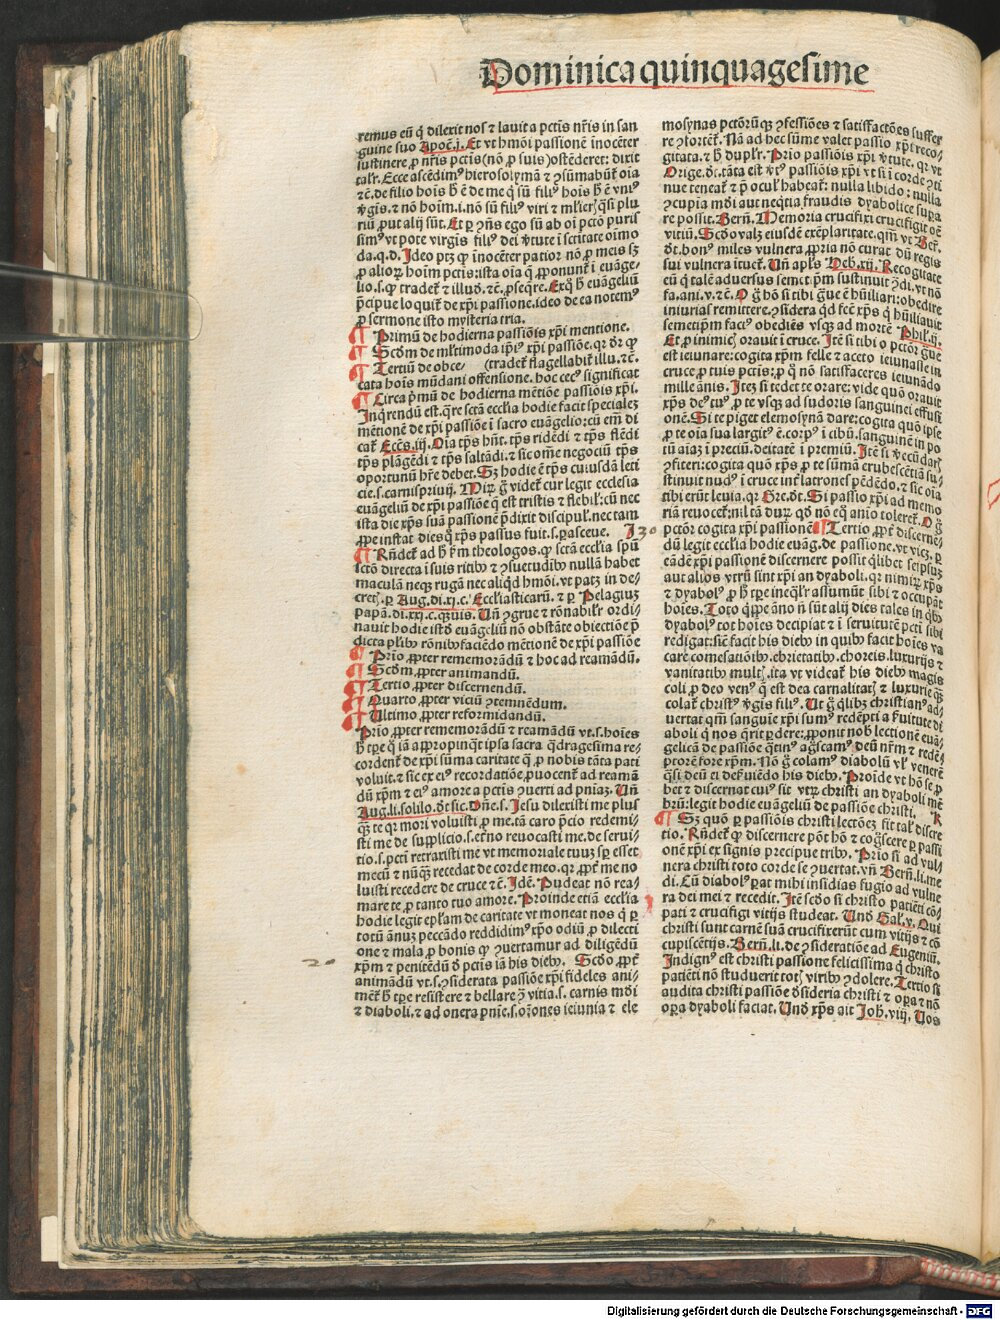 Dominica quinquagesime
remus eū q̇ dilexit nos ⁊ lauit a pctīs nr̄is in san
guine suo Apoc̄.j. Et vt hmōi passionē inocēter
sustinere ꝓ nr̄is pctīs (nō ꝓ suis) ostēderet: dixit
tal'r. Ecce ascēdim⁹ hierosolymā ⁊ ꝯsūmabūt̄ oīa
⁊c̄. de filio hoīs
v̄gīs. ⁊ nō hoīm.i. nō sū fili⁹ viri
riū ꝓut alij sūt. Et
sim⁹ vt pote virgis fili⁹ dei
da.q.d. Ideo ptȝ ꝙ inocēter patior nō ꝓ meis sȝ
ꝓ alioꝝ hoīm pctīs: ista oīa
lio.s. ꝙ tradet̄ ⁊ illud.⁊c̄. ꝓseqr̄e.
p̄cipue loquit̄ de xp̄i passione. ideo de ea notem⁹
ꝓ sermone isto mysteria tria.
¶ Primū de hodierna passiōis xp̄i mentione.
¶ Scd̄m de ml̄timoda ip̄i⁹ xp̄i passiōe. qr dr̄ ꝙ
¶ Tertiū de obce⸗ (tradet̄ flagellabit̄ illu.⁊c̄.
cata hoīs mūdani offensione. hoc cec⁹ significat
¶ Circa p̄mū de hodierna mētiōe passiōis xp̄i.
Inq̇rendū est. q̄re sctā eccl̄ia hodie facit specialeȝ
mētionē de xp̄i passiōe i sacro euāgelio: cū em̄ di
cat̄ Eccs̄.iij. Oīa tp̄s hn̄t. tp̄s ridēdi ⁊ tp̄s flēdi
tp̄s plāgēdi ⁊ tp̄s saltādi. ⁊ sic om̄e negociū tp̄s
oportunū hr̄e debet. Sȝ hodie ē tp̄s cuiusdā leti
cie.s. carnispriuij. Mirꝝ ḡ videt̄ cur legit ecclesia
euāgeliū de xp̄i passiōe q̄ est tristis ⁊ flebil': cū nec
ista die xp̄s suā passionē p̄dixit discipul'. nec tam
ꝓpe instat dies q̇ xp̄s passus fuit. s. pasceue.
130
¶ Rn̄det̄ ad h̄ km̄ theologos. ꝙ sctā eccl̄ia spū
sctō directa i suis ritibꝰ ⁊ ꝯsuetudibꝰ nullā habet
maculā neqꝫ rugā nec aliq̇d hmōi. vt patȝ in de⸗
cret꜄. ꝑ Aug.di.xj.c. Ecclīasticarū. ⁊ ꝑ Pelagiuȝ
papā.di.xxj.c. q̄ꝫuis. Un̄ ꝯgrue ⁊ rōnabil'r ordi⸗
nauit hodie istd̄ euāgeliū nō obstāte obiectiōe p̄
dicta pl̄ibꝰ rōnibꝰ faciēdo mētionē de xp̄i passiōe
¶ Prīo ꝓpter rememorādū ⁊ hoc ad reamādū.
¶ Scd̄m ꝓpter animandū.
¶ Tertio ꝓpter discernendū.
¶ Quarto ꝓpter viciū ꝯtemnēdum.
¶ Ultimo ꝓpter reformidandū.
Prīo ꝓpter rememorādū ⁊ reamādū vt.s. hoīes
h̄ tp̄e q̇ iā appropinq̇t ipsa sacra q̇dragesima re⸗
cordent̄ de xp̄i sūma caritate q̄ ꝓ nobis tāta pati
voluit. ⁊ sic ex ei⁹ recordatiōe ꝓuocent̄ ad reamā
dū xp̄m ⁊ ei⁹ amore a pctīs ꝯuerti ad pniaȝ. Un̄
Aug.li.solilo.d̄t sic. Dn̄e.s. Jesu dilexisti me plus
q̄ꝫ te qr mori voluisti ꝓ me. tā caro p̄cio redemi⸗
sti me de supplicio.s. et̄no reuocasti me de serui⸗
tio.s. pctī retraxisti me vt memoriale tuuȝ sp̄ esset
mecū ⁊ nūq̄ꝫ recedat de corde meo. qr ꝓpt̄ me no
luisti recedere de cruce ⁊c̄. Idē. Pudeat nō rea⸗
mare te ꝓ tanto tuo amore. Proinde etiā eccl̄ia
hodie legit epl̄am de caritate vt moneat nos q̇ ꝑ
totū ānuȝ peccādo reddidim⁹ xp̄o odiū ꝓ dilecti
one ⁊ mala ꝓ bonis ꝙ ꝯuertamur ad diligēdū
xp̄m ⁊ penitēdū d̄ pctīs iā his diebꝰ. Scd̄o ꝓpt̄
animādū vt.s. ꝯsiderata passiōe xp̄i fideles ani⸗
ment̄ h̄ tp̄e resistere ⁊ bellare ꝯ̄ vitia.s. carnis mōi
⁊ diaboli. ⁊ ad opera pnie.s. orōnes ieiunia ⁊ ele
mosynas pctōrūqꝫ ꝯfessiōes ⁊ satisfactōes suffer
re ꝯfortet̄. Nā ad hec sūme valet passio xp̄i reco⸗
gitata. ⁊ h̄ dupl'r. Prīo passiōis xp̄i v̄tute. qr vt
Orige.d̄t. tāta est v̄t⁹ passiōis xp̄i vt si i corde ꝯti
nue teneat̄ ⁊ p̄ ocul' habeat̄: nulla libido: nulla
ꝯcupia mōi aut neq̇tia fraudis dyabolice supa
re possit. Bern̄. Memoria crucifixi crucifigit oē
vitiū. Scd̄o valȝ eiusdē exēplaritate. qm̄ vt Ber̄.
d̄t. bon⁹ miles vulnera ꝓpria nō curat dū regis
sui vulnera ītuet̄. Un̄ apl's Heb.xij. Recogitate
eū q̇ talē aduersus semet ip̄m sustinuit ꝯdi. vt nō
fa.ani.v.⁊c̄. O ḡ hō si tibi ḡue ē hūiliari: obedire
iniurias remittere. ꝯsidera q̇d fec̄ xp̄s q̇ hūiliauit
semetip̄m fact⁹ obediēs vsqꝫ ad mortē Phil'.ij.
Et ꝓ inimic꜄ orauit i cruce. Itē si tibi ꝓ pctōr̄ ḡue
est ieiunare: cogita xp̄m felle ⁊ aceto ieiunasse in
cruce ꝓ tuis pctīs: ꝓ q̇ nō satisfaceres ieiunādo
mille ānis. Iteȝ si te tedet orare: vide quō orauit
xp̄s de⁹ tu⁹ ꝓ te vsqꝫ ad sudoris sanguinei effusi
onē. Si te piget elemosynā dare: cogita quō ipse
ꝓ te oīa sua largit⁹ ē. corp⁹ i cibū. sanguinē in po
tū aiaȝ i preciū. deitatē i premiū. Itē si
ꝯfiteri: cogita quō xp̄s ꝓ te sūmā erubescētiā su⸗
stinuit nud⁹ i cruce int̄ latrones pēdēdo. ⁊ sic oīa
tibi erūt leuia. qr Gre.d̄t. Si passio xp̄i ad memo
riā reuocet̄: nil tā durꝝ qd̄ nō eq̇ anio toleret̄. O ḡ
pctōr cogita xp̄i passionē ¶ Tertio ꝓpt̄ discernē⸗
dū legit eccl̄ia hodie euāg. de passione. vt
eādē xp̄i passionē discernere possit q̇libet seipsuȝ
aut alios vtrū sint xp̄i an dyaboli. qr nimiꝝ xp̄s
⁊ dyabol⁹ ꝓ h̄ tp̄e ineq̄l'r assumūt sibi ⁊ occupāt
hoīes. Toto q̇ppe āno n̄ sūt alij dies tales in q̇bꝰ
dyabol⁹ tot hoīes decipiat ⁊ i seruitutē pctī sibi
redigat: sic̄ facit his diebꝰ in quibꝰ facit hoīes va
care comesatiōibꝰ. ebrietatibꝰ. choreis. luxurijs ⁊
vanitatibꝰ mult꜄. ita vt videat̄ his diebꝰ magis
coli ꝓ deo ven⁹ q̄ est dea carnalitat꜄ ⁊ luxurie q̄ꝫ
colat̄ christ⁹ v̄gīs fili⁹. Ut ḡ q̇libꝫ christian⁹ ad⸗
uertat qm̄ sanguīe xp̄i sum⁹ redēpti a s̄uitute di
aboli q̇ nos q̄rit ꝑdere: ꝓponit nobꝭ lectionē euā⸗
gelicā de passiōe q̇tin⁹ ag̊scam⁹ deū nr̄m ⁊ redē⸗
ptorē fore xp̄m. Nō ḡ colam⁹ diabolū vl' venerē
q̇si deū ei
bet ⁊ discernat cui⁹ sit vtꝝ christi an dyaboli mē
brū: legit hodie euāgeliū de passiōe christi.
¶ Sȝ quō ꝑ passiōis christi lectōeȝ fit tal' discre
tio. Rn̄det̄ ꝙ discernere pōt hō ⁊ cog̊scere ꝑ passi
onē xp̄i ex signis precipue tribꝰ. Prīo si ad vul⸗
nera christi toto corde se ꝯuertat. vn̄ Bern̄.li.me
di. Cū diabol⁹ ꝑat mihi insidias fugio ad vulne
ra dei mei ⁊ recedit. Itē scd̄o si christo patiēti cō⸗
pati ⁊ crucifigi vitijs studeat. Und̄ Gal'.v. Qui
christi sunt carnē suā crucifixerūt cum vitijs ⁊ cō
cupiscētijs. Bern̄.li. de ꝯsideratiōe ad Eugeniū.
Indign⁹ est christi passione felicissima q̇ christo
patiēti nō studuerit tot꜄ viribꝰ ꝯdolere. Tertio si
audita christi passiōe d̄sideria christi ⁊ oꝑa ⁊ nō
oꝑa dyaboli faciat. Und̄ xp̄s ait Joh̄.viij. Uos
Digitalisierung gefördert durch die Deutsche Forschungsgemeinschaft - DFG